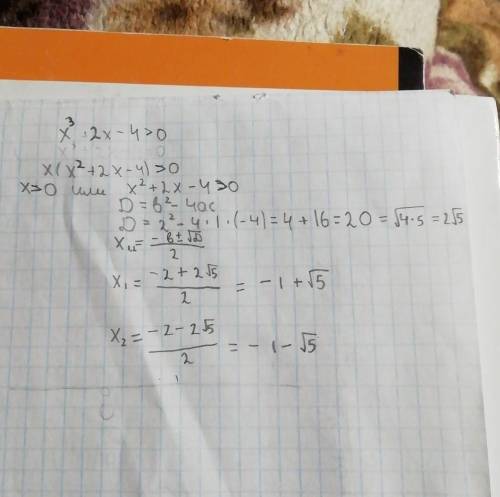 x³ · 2x - 4 > 0
x(x² + 2x - 4) > 0
x > 0 или x² + 2x - 4 > 0
D = b² - 4ac
D = 2² - 4 · 1 · (-4) = 4 + 16 = 20 = √4·5 = 2√5
x₁,₂ = (-b ± √D) / 2
x₁ = (-2 + 2√5) / 2 = -1 + √5
x₂ = (-2 - 2√5) / 2 = -1 - √5